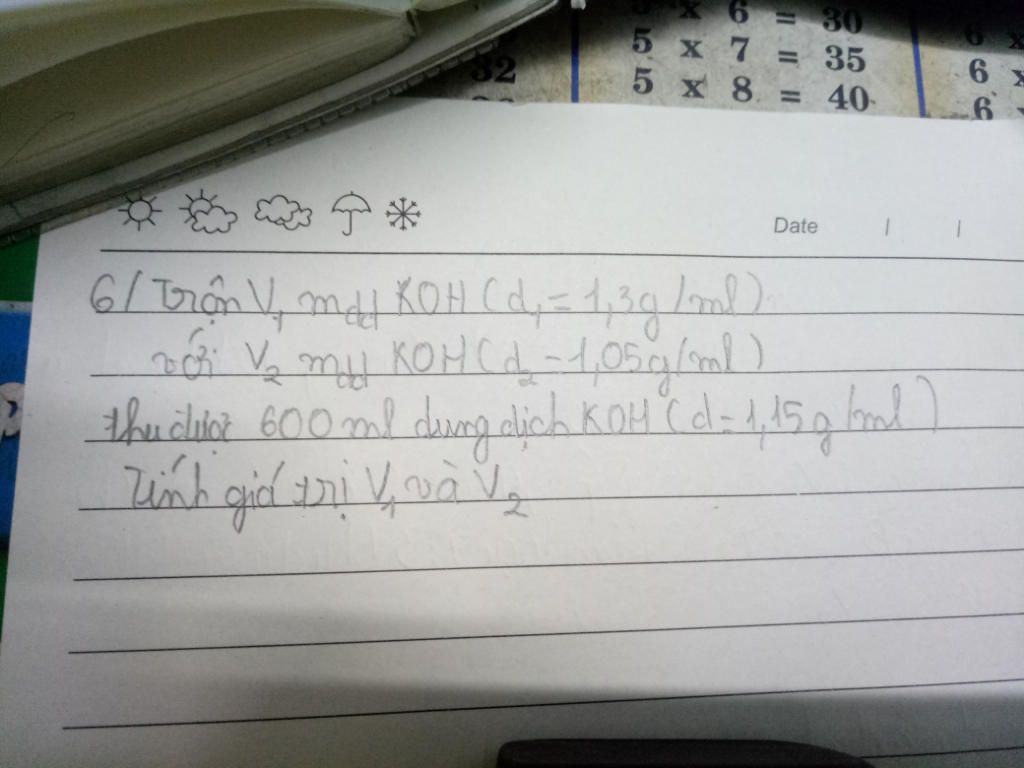 5 x 6 = 30
32
5 x 7 = 35
5 x 8 = 40
6 x
6 x
6
Date / /
6/ Trộn V₁ mdd KOH (d₁ = 1,3g/ml)
với V₂ mdd KOH (d₂ = 1,05g/ml)
thu được 600 ml dung dịch KOH (d = 1,15g/ml)
Tính giá trị V₁ và V₂